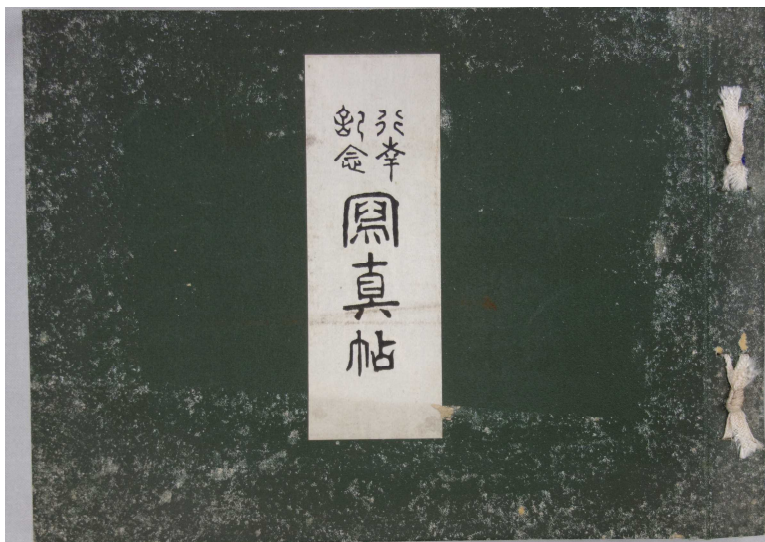 行幸
記念
寫真帖